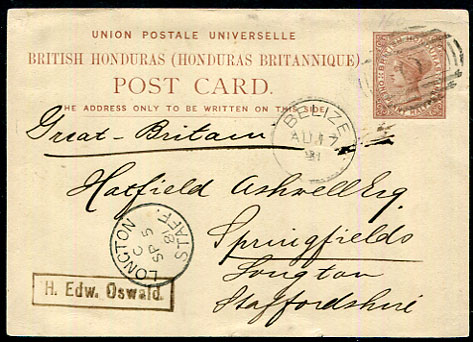 UNION POSTALE UNIVERSELLE
BRITISH HONDURAS (HONDURAS BRITANNIQUE)
POST CARD.
THE ADDRESS ONLY TO BE WRITTEN ON THIS SIDE
Great-Britain
BELIZE
AU 17
81
Hatfield Ashwell Esq.
Springfields
Longton
Staffordshire
LONGTON STAFF.
C
SP 5
81
H. Edw. Oswald.